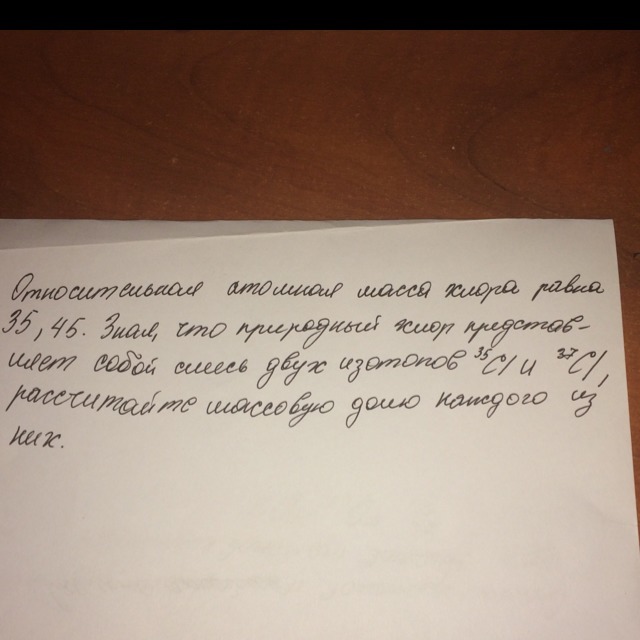 Относительная атомная масса хлора равна
35,45. Зная, что природный хлор представ-
ляет собой смесь двух изотопов ³⁵Cl и ³⁷Cl,
рассчитайте массовую долю каждого из
них.